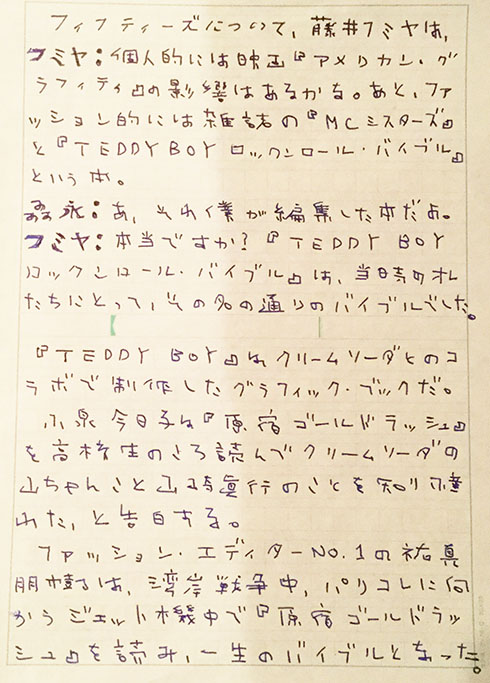 フィフティーズについて、藤井フミヤは、
フミヤ：個人的には映画『アメリカン・グ
ラフィティ』の影響はあるかな。あと、ファ
ッション的には雑誌の『MCシスターズ』
と『TEDDY BOY ロックンロール・バイブル』
という本。
森永：あ、それ僕が編集した本だよ。
フミヤ：本当ですか？『TEDDY BOY
ロックンロール・バイブル』は、当時のオレ
たちにとって、その名の通りのバイブルでした。
『TEDDY BOY』はクリームソーダとのコ
ラボで制作したグラフィック・ブックだ。
小泉今日子は『原宿ゴールドラッシュ』
を高校生のころ読んでクリームソーダの
山ちゃんこと山崎眞行のことを知り憧
れた、と告白する。
ファッション・エディターNO.1の祐真
朋樹は、湾岸戦争中、パリコレに向
かうジェット機中で『原宿ゴールドラッ
シュ』を読み、一生のバイブルとなった。